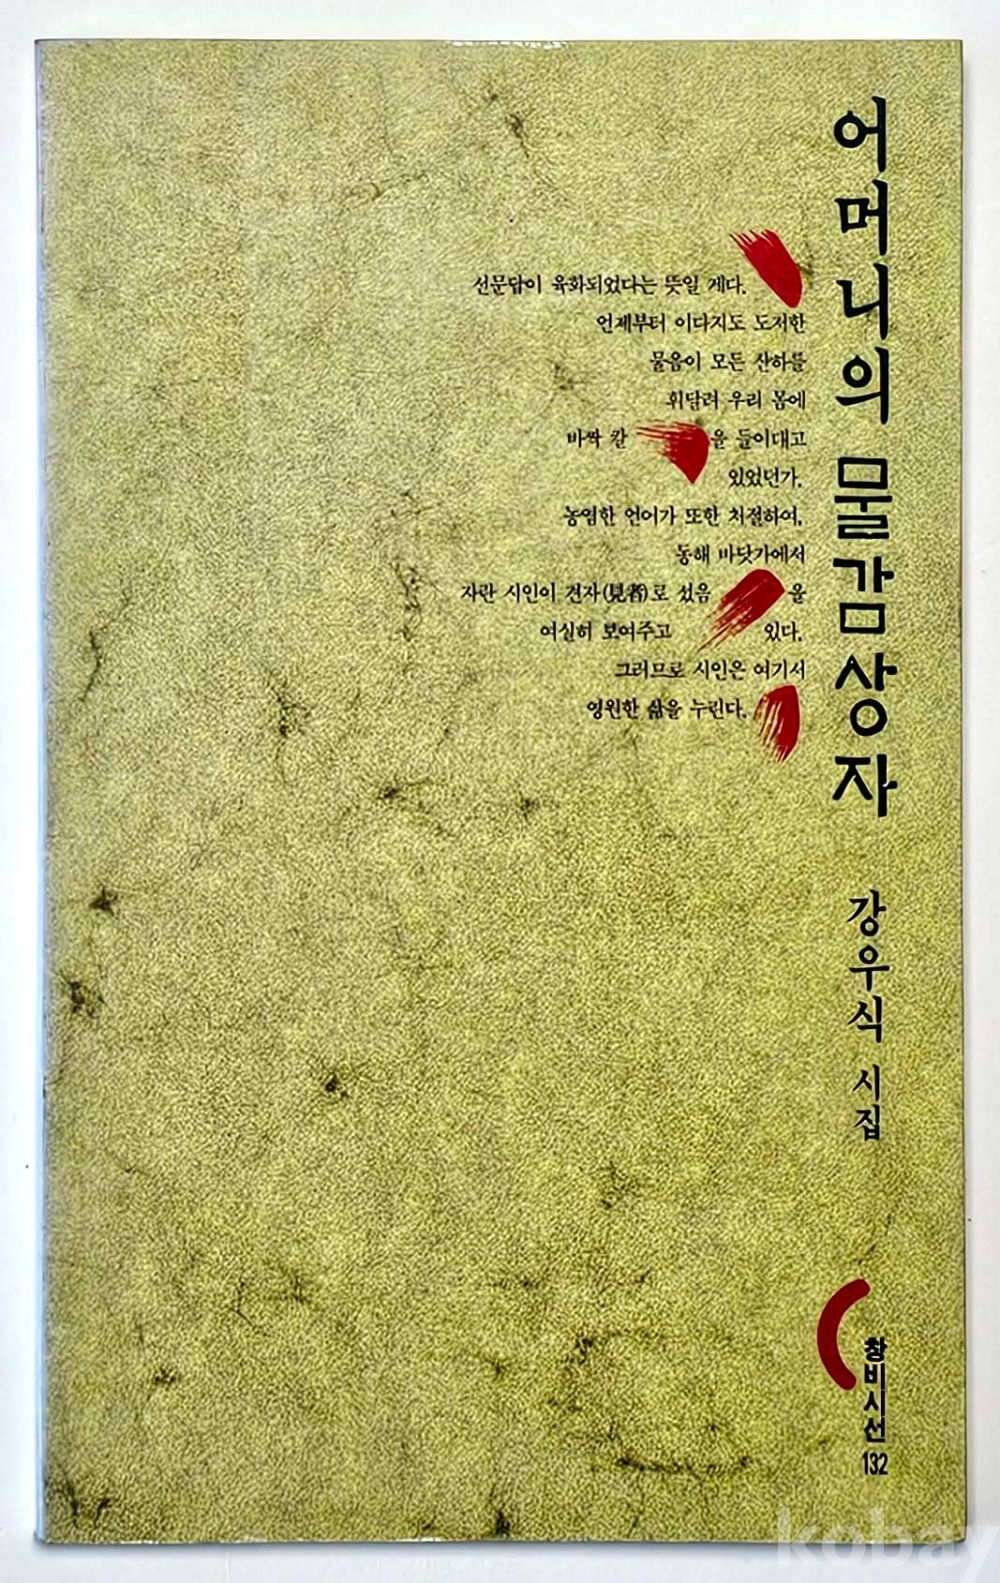 어머니의 물감상자
강우식 시집
선문답이 육화되었다는 뜻일 게다.
언제부터 이다지도 도저한
물음이 모든 산하를
휘달려 우리 몸에
바싹 칼을 들이대고
있었던가.
농염한 언어가 또한 처절하여,
동해 바닷가에서
자란 시인이 견자(見者)로 섰음을
여실히 보여주고 있다.
그러므로 시인은 여기서
영원한 삶을 누린다.
창비시선
132
kobay